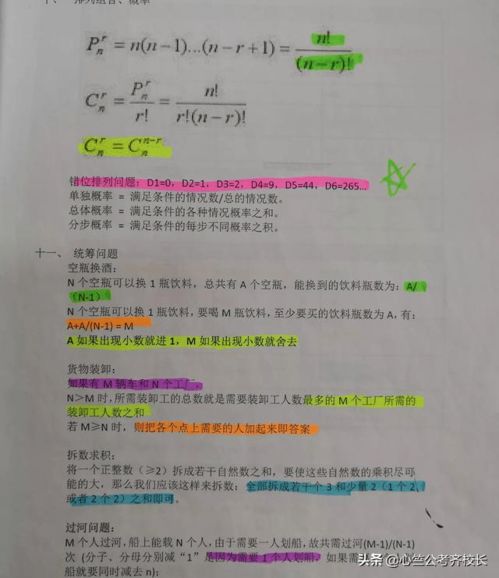 十、 排列组合、概率
P_n^r = n(n−1)...(n−r+1) = n!/(n−r)!
C_n^r = P_n^r/r! = n!/r!(n−r)!
C_n^r = C_n^{n−r}
错位排列问题：D1=0，D2=1，D3=2，D4=9，D5=44，D6=265…
单独概率 = 满足条件的情况数/总的情况数。
总体概率 = 满足条件的各种情况概率之和。
分步概率 = 满足条件的每步不同概率之积。
十一、 统筹问题
空瓶换酒：
N 个空瓶可以换 1 瓶饮料，总共有 A 个空瓶，能换到的饮料瓶数为：A/
（N-1）
N 个空瓶可以换 1 瓶饮料，要喝 M 瓶饮料，至少要买的饮料瓶数为 A，有：
A+A/(N-1) = M
A 如果出现小数就进 1，M 如果出现小数就舍去
货物装卸：
如果有 M 辆车和 N 个工厂，
N＞M 时，所需装卸工的总数就是需要装卸工人数最多的 M 个工厂所需的
装卸工人数之和
若 M≥N 时，则把各个点上需要的人加起来即答案
拆数求积：
将一个正整数（≥2）拆成若干自然数之和，要使这些自然数的乘积尽可
能的大，那么我们应该这样来拆数：全部拆成若干个 3 和少量 2（1 个 2
或者 2 个 2）之和即可。
过河问题：
M 个人过河，船上能载 N 个人，由于需要一人划船，故共需过河(M-1)/(N-1)
次 (分子、分母分别减“1”是因为需要 1 个人划船，如果需要
船就要同时减去 n)；
头条 @心竺公考齐校长